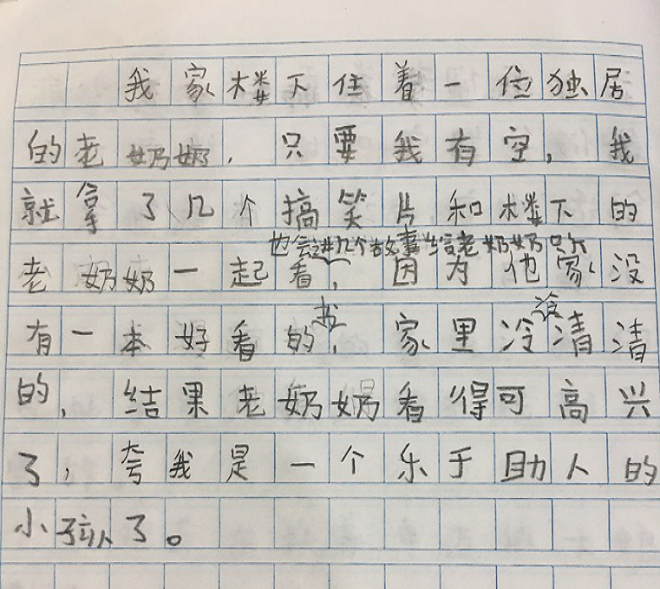 我家楼下住着一位独居
的老奶奶，只要我有空，我
就拿了几个搞笑片和楼下的
也会讲几个故事给老奶奶听
老奶奶一起看，因为他家没
有一本好看的书，家里冷冷清清
的，结果老奶奶看得可高兴
了，夸我是一个乐于助人的
小孩了。